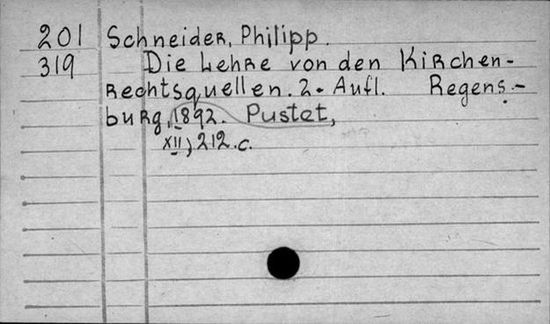 201 Schneider, Philipp.
319 Die Lehre von den Kirchen-
rechtsquellen. 2. Aufl. Regens-
burg, 1892. Pustet,
XII, 212.c.